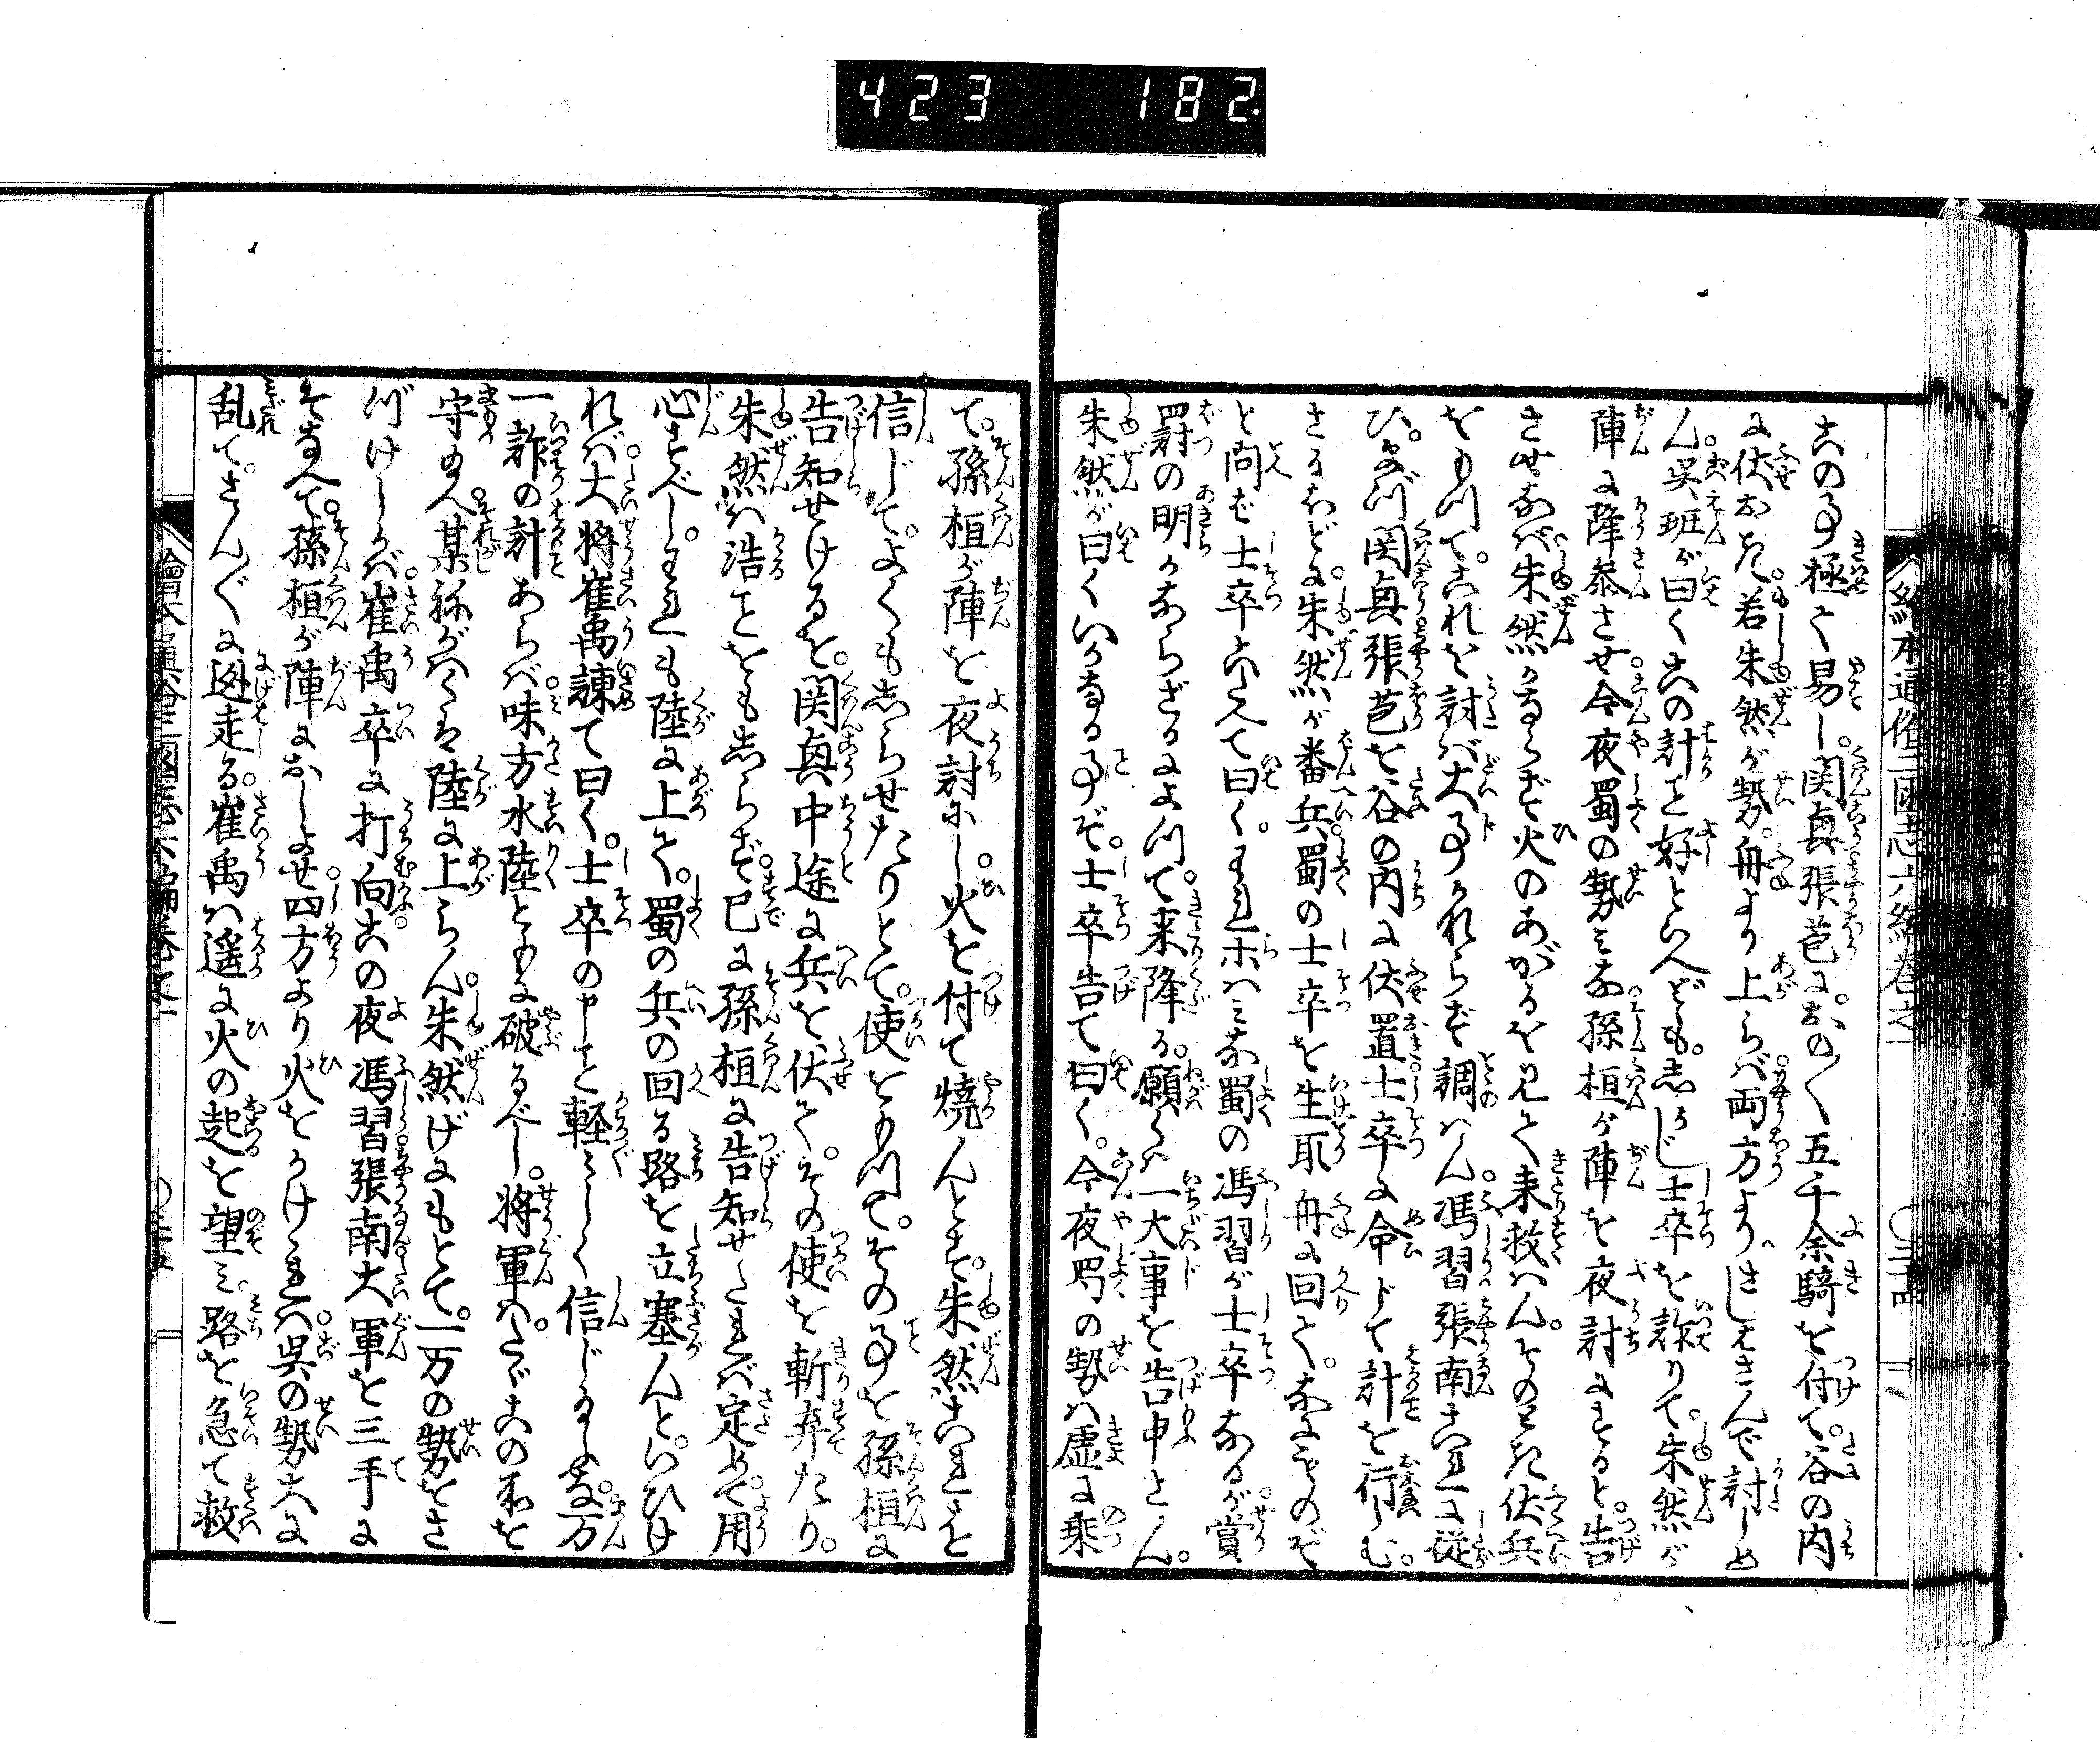 423 182
絵本通俗三国志六編巻之一 〇三十四
この事極て易し。関興張苞におの〳〵五千余騎を付て。谷の内
に伏おき。若朱然が勢。舟より上らば両方より。さしはさんで討しめ
ん。呉班が曰くこの計こと好といへども。しかじ士卒を詐りて。朱然が
陣に降参させ。今夜蜀の勢みな。孫桓が陣を夜討にすると。告
させなば。朱然かならず火のあがるを見て来救はん。そのとき伏兵
をもつて。これを討ば大事かならず調はん。馮習張南これに従
ひ。まづ関興張苞を谷の内に伏置。士卒に命じて計を行しむ。
さるほどに。朱然が番兵。蜀の士卒を生取舟に回て。なにものぞ
と問ば士卒こたへて曰く。われ等はみな蜀の馮習が士卒なるが。賞
罰の明かならざるによつて。来降る。願くは一大事を告申さん。
朱然が曰くいかなる事ぞ。士卒告て曰く。今夜蜀の勢は虚に乗
て。孫桓が陣を夜討にし。火を付て焼んとす。朱然これを
信じて。よくもしらせたりとて。使をもつて。その事を孫桓に
告知せけるを。関興中途に兵を伏て。その使を斬弃たり。
朱然は浩ることをもしらず。已に孫桓に告知せたれば定めて用
心すべし。われも陸に上て。蜀の兵の回る路を立塞んと。いひけ
れば。大将崔禹諫て曰く。士卒の申こと軽〳〵しく信じ給ふな。万
一詐の計あらば。味方水陸ともに破るべし。将軍は。たゞこの舟を
守給へ。某祢がはくは陸に上らん。朱然げにもとて。一万の勢をさ
づけしかば。崔禹卒に打向。この夜馮習張南大軍を三手に
そなへて。孫桓が陣におしよせ。四方より火をかけゝれば。呉の勢大に
乱て。さん〴〵に迯走る。崔禹は遥に火の起を望み路を急て救
絵本通俗三国志六編巻之一 〇三十五